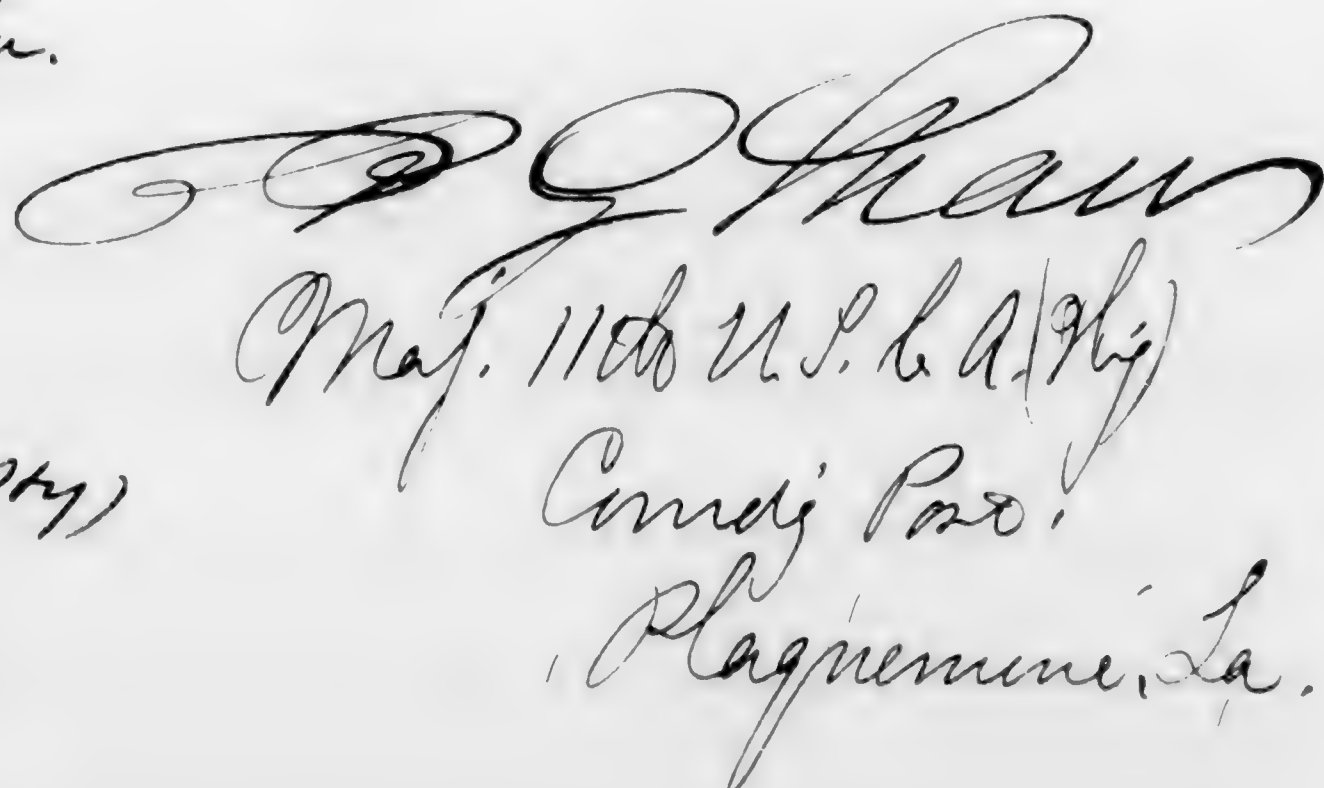 G Shaw
Maj. 11th U.S.C.A. (Hvy)
Comdg Post.
Plaquemine, La.